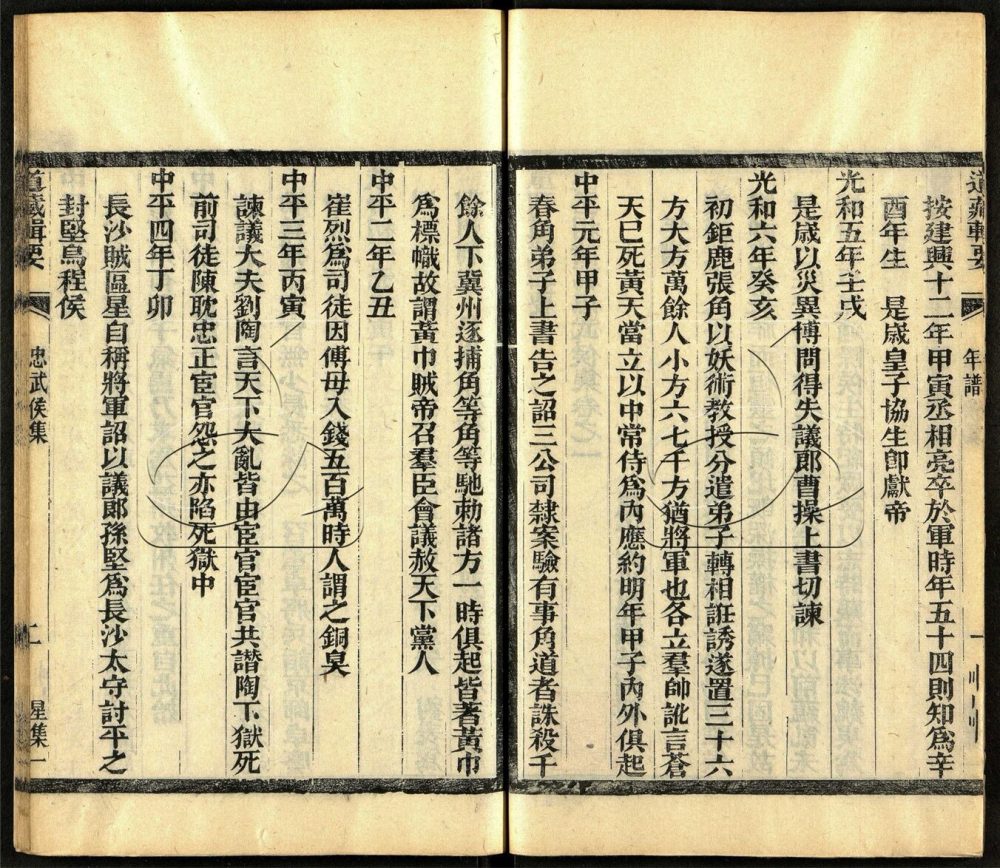 道藏輯要
年譜
按建興十二年甲寅丞相亮卒於軍時年五十四則知爲辛
酉年生　是歲皇子協生卽獻帝
光和五年壬戌
是歲以災異博問得失議郎曹操上書切諫
光和六年癸亥
初鉅鹿張角以妖術教授分遣弟子轉相誑誘遂置三十六
方大方萬餘人小方六七千方猶將軍也各立羣帥訛言蒼
天巳死黃天當立以中常侍爲內應約明年甲子內外俱起
中平元年甲子
春角弟子上書告之詔三公司隸案驗有事角道者誅殺千
餘人下冀州逐捕角等角等馳勅諸方一時俱起皆著黃巾
爲標幟故謂黃巾賊帝召羣臣會議赦天下黨人
中平二年乙丑
崔烈爲司徒因傅母入錢五百萬時人謂之銅臭
中平三年丙寅
諫議大夫劉陶言天下大亂皆由宦官宦官共譖陶下獄死
前司徒陳耽忠正宦官怨之亦陷死獄中
中平四年丁卯
長沙賊區星自稱將軍詔以議郎孫堅爲長沙太守討平之
封堅烏程侯
道藏輯要
忠武侯集
二
星集一